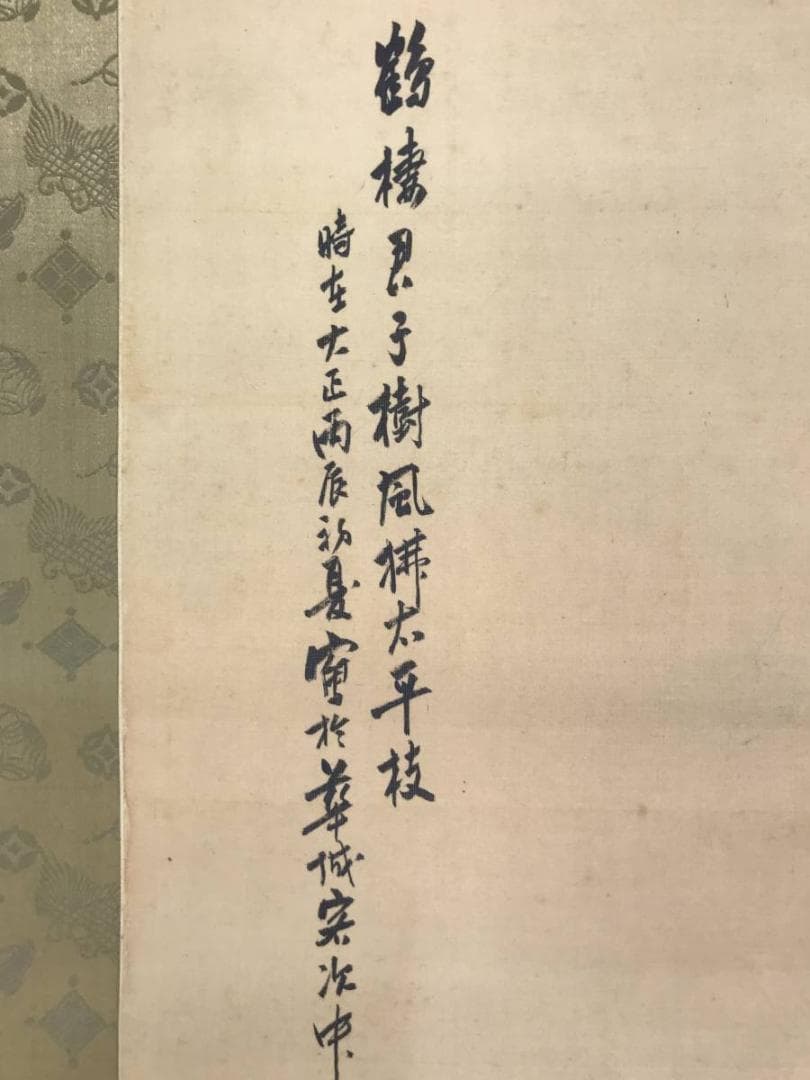 鶴棲君子樹風拂太平枝
時在大正丙辰初夏寫於華城客次中